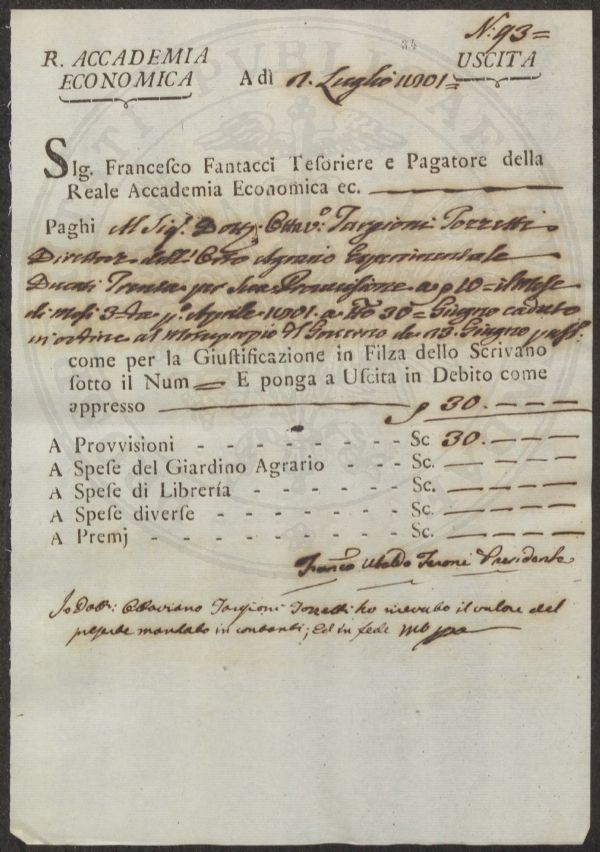 N.: 93 =
34
R. ACCADEMIA
ECONOMICA
USCITA
A dì 1. Luglio 1801 =
SIg. Franceſco Fantacci Teſoriere e Pagatore della
Reale Accademia Economica ec.
Paghi Al Sig.r Dott.r Ottav.o Targioni Tozzetti
Direttore dell' Orto Agrario Esperimentale
Ducati Trenta per sua Provvisione a p 10 = il Mese
di Mesi 3 da p.o Aprile 1801. a tto 30 = Giugno caduto
in ordine al Motuproprio del Governo de 13. Giugno
come per la Giuſtificazione in Filza dello Scrivano
ſotto il Num E ponga a Uſcita in Debito come
appresso 30. — — —
A Provvisioni - - - - - - - - Sc 30. — — —
A Speſe del Giardino Agrario - - - Sc. — — — —
A Speſe di Librería - - - - - - - Sc. — — — —
A Speſe diverſe - - - - - - - Sc. — — — —
A Premj - - - - - - - - - Sc. — — — —
Franc.o Ubaldo Feroni Presidente
Io Dott.r Ottaviano Targioni Tozzetti ho ricevuto il valore del
presente mandato in contanti; Ed in fede
PUBLICAE